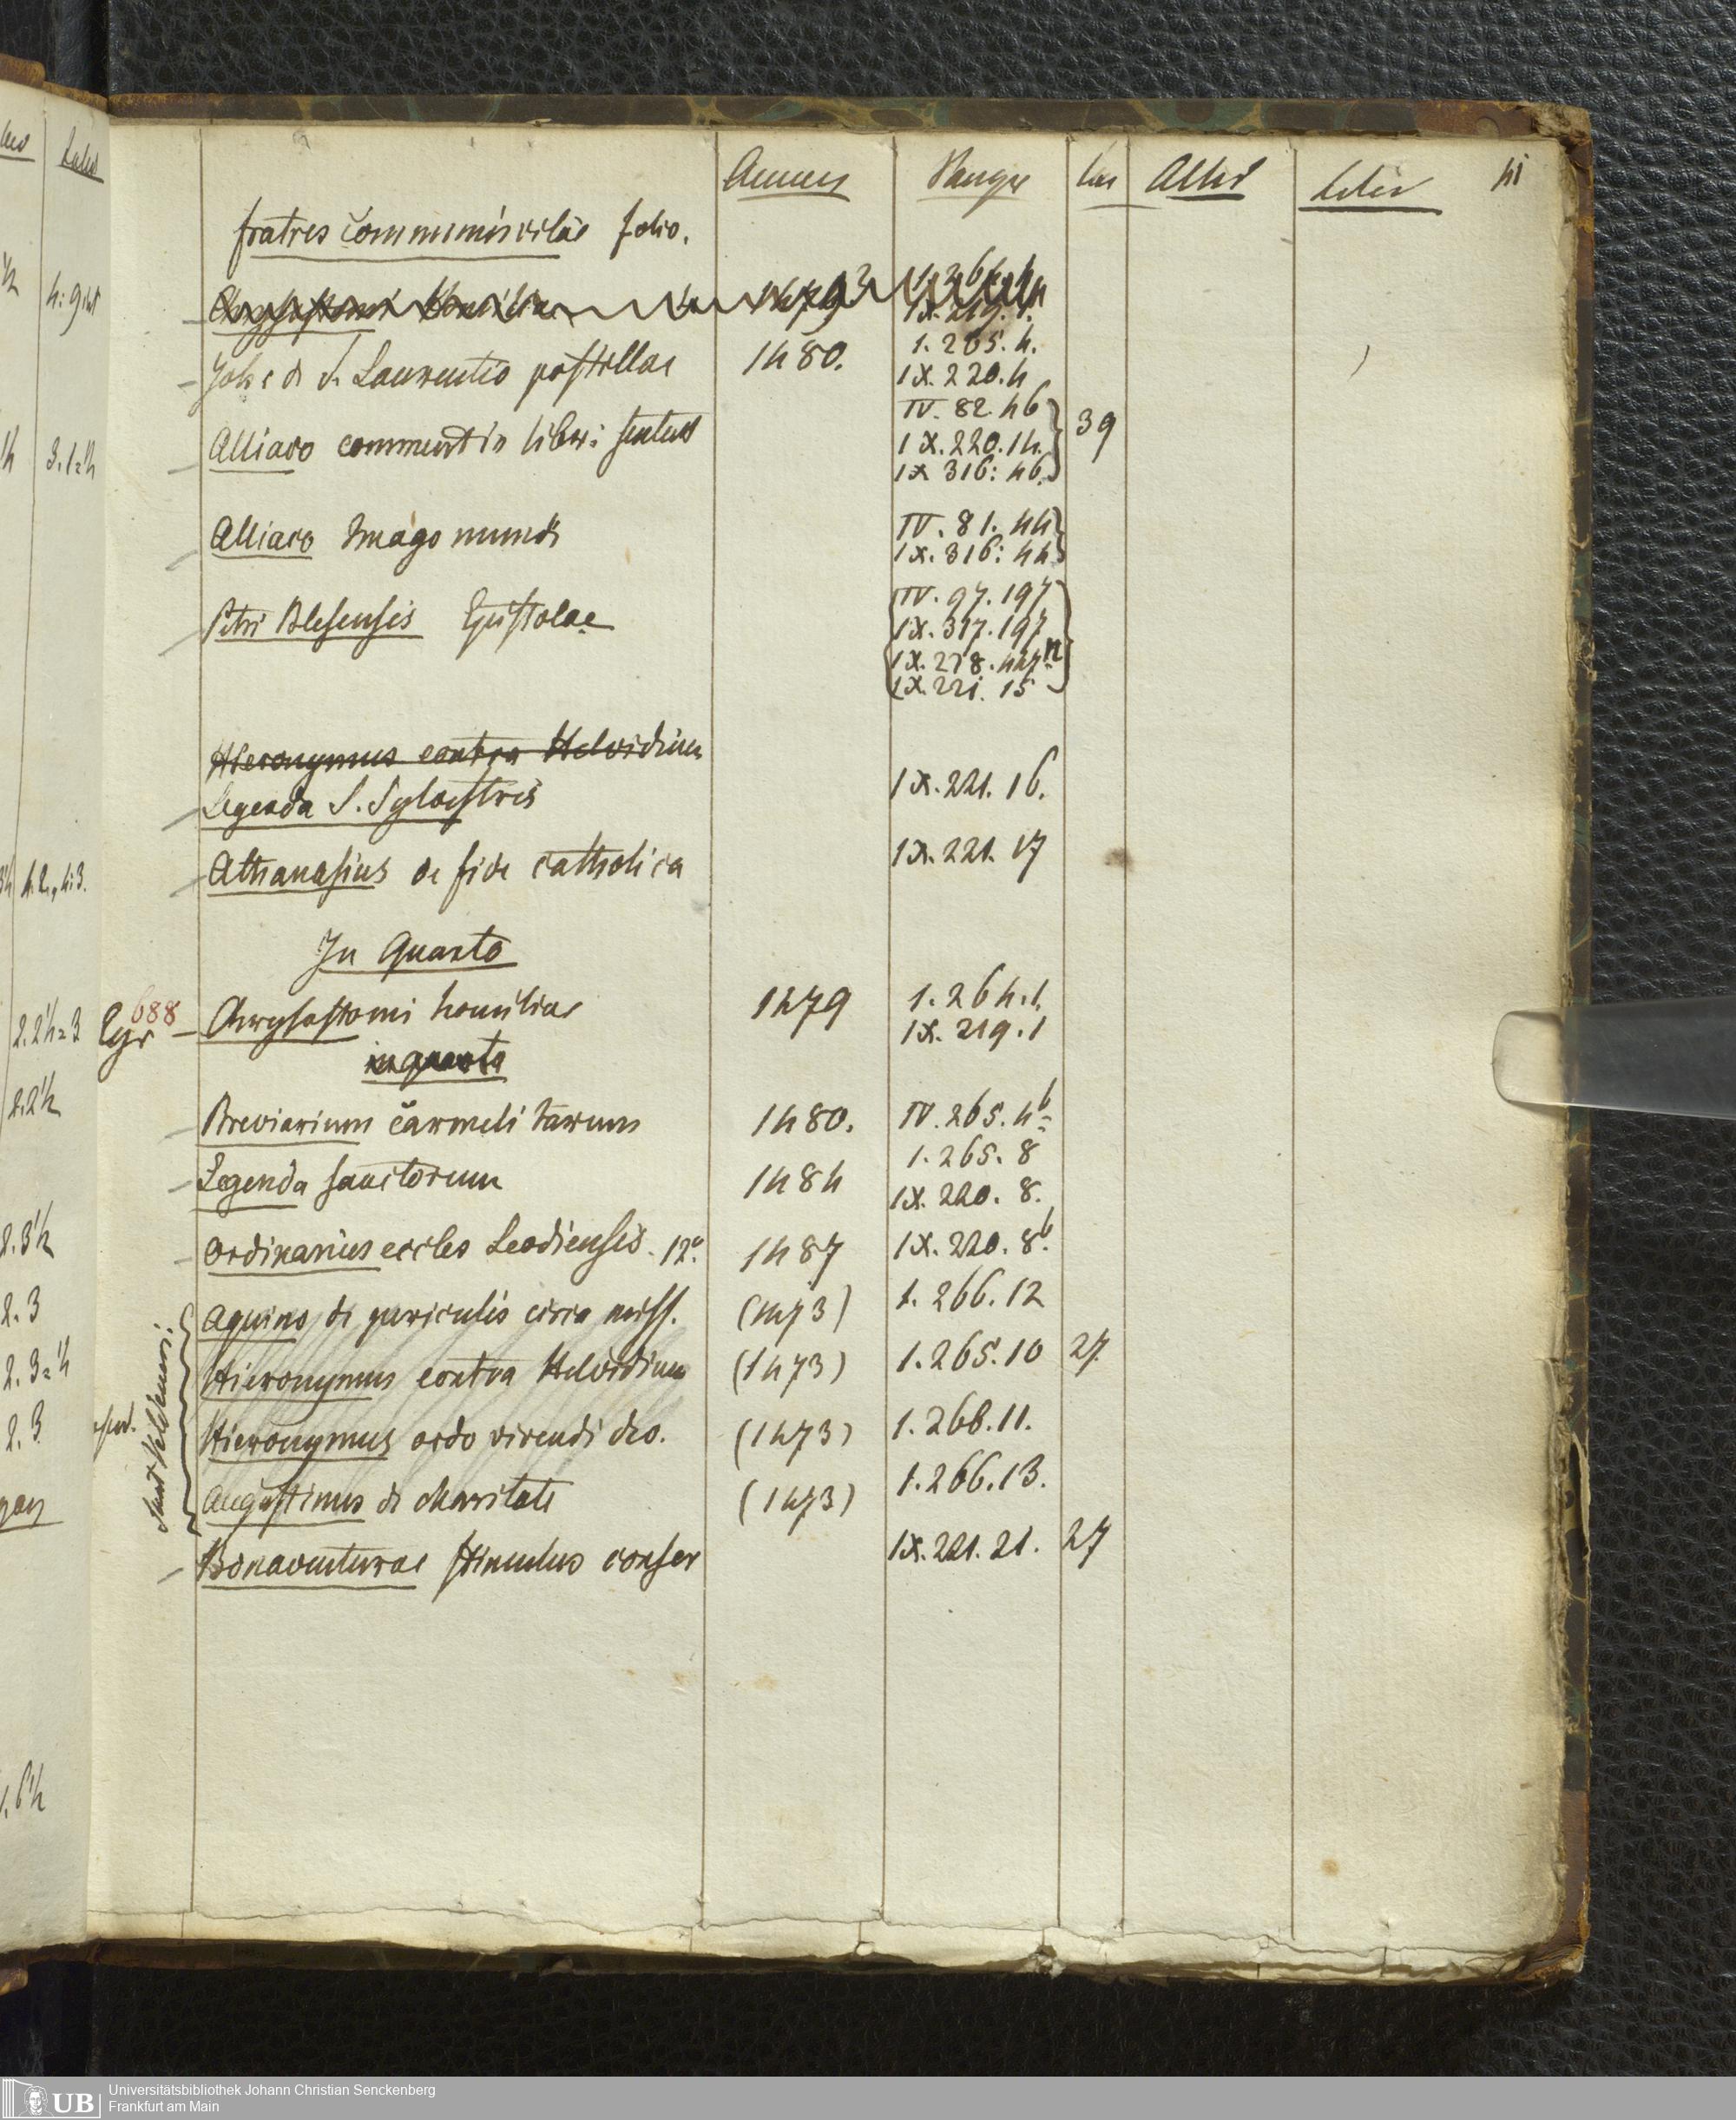 Annus Panzer Lin Altit Latit 41
fratres communis vitae folio.
Chrysostomi homiliae 1479 IX. 219. 1.
Joh: e de S. Laurentio postillae 1480. 1. 265. 4.
IX. 220. 4
Alliaco comment in libr: sentent IV. 82. 46 39
IX. 220. 14.
IX 316: 46.
Alliaco Imago mundi IV. 81. 44
IX. 316: 44
Petri Blesensis Epistolae IV. 97. 197
IX. 317. 197
IX. 278. 447 n
IX. 221. 15
Hieronymus contra Helvidium
Legenda S. Sylvestris IX. 221. 16.
Athanasius de fide catholica IX. 221. 17
In Quarto
688
Chrysostomi homiliae 1479 1. 264. 1.
IX. 219. 1
in quarto
Breviarium carmelitarum 1480. IV. 265. 4b
Legenda sanctorum 1484 1. 265. 8
IX. 220. 8.
Ordinarius eccles Leodiensis. 12o. 1487 IX. 220. 8b.
Aquino de periculis circa miss. (1473) 1. 266. 12
Hieronymus contra Helvidium (1473) 1. 265. 10 27.
Hieronymus ordo vivendi deo. (1473) 1. 266. 11.
Augustinus de charitate (1473) 1. 266. 13.
Sunt Veldeneri.
Bonaventurae stimulus conser IX. 221. 21. 27
UB Universitätsbibliothek Johann Christian Senckenberg
Frankfurt am Main